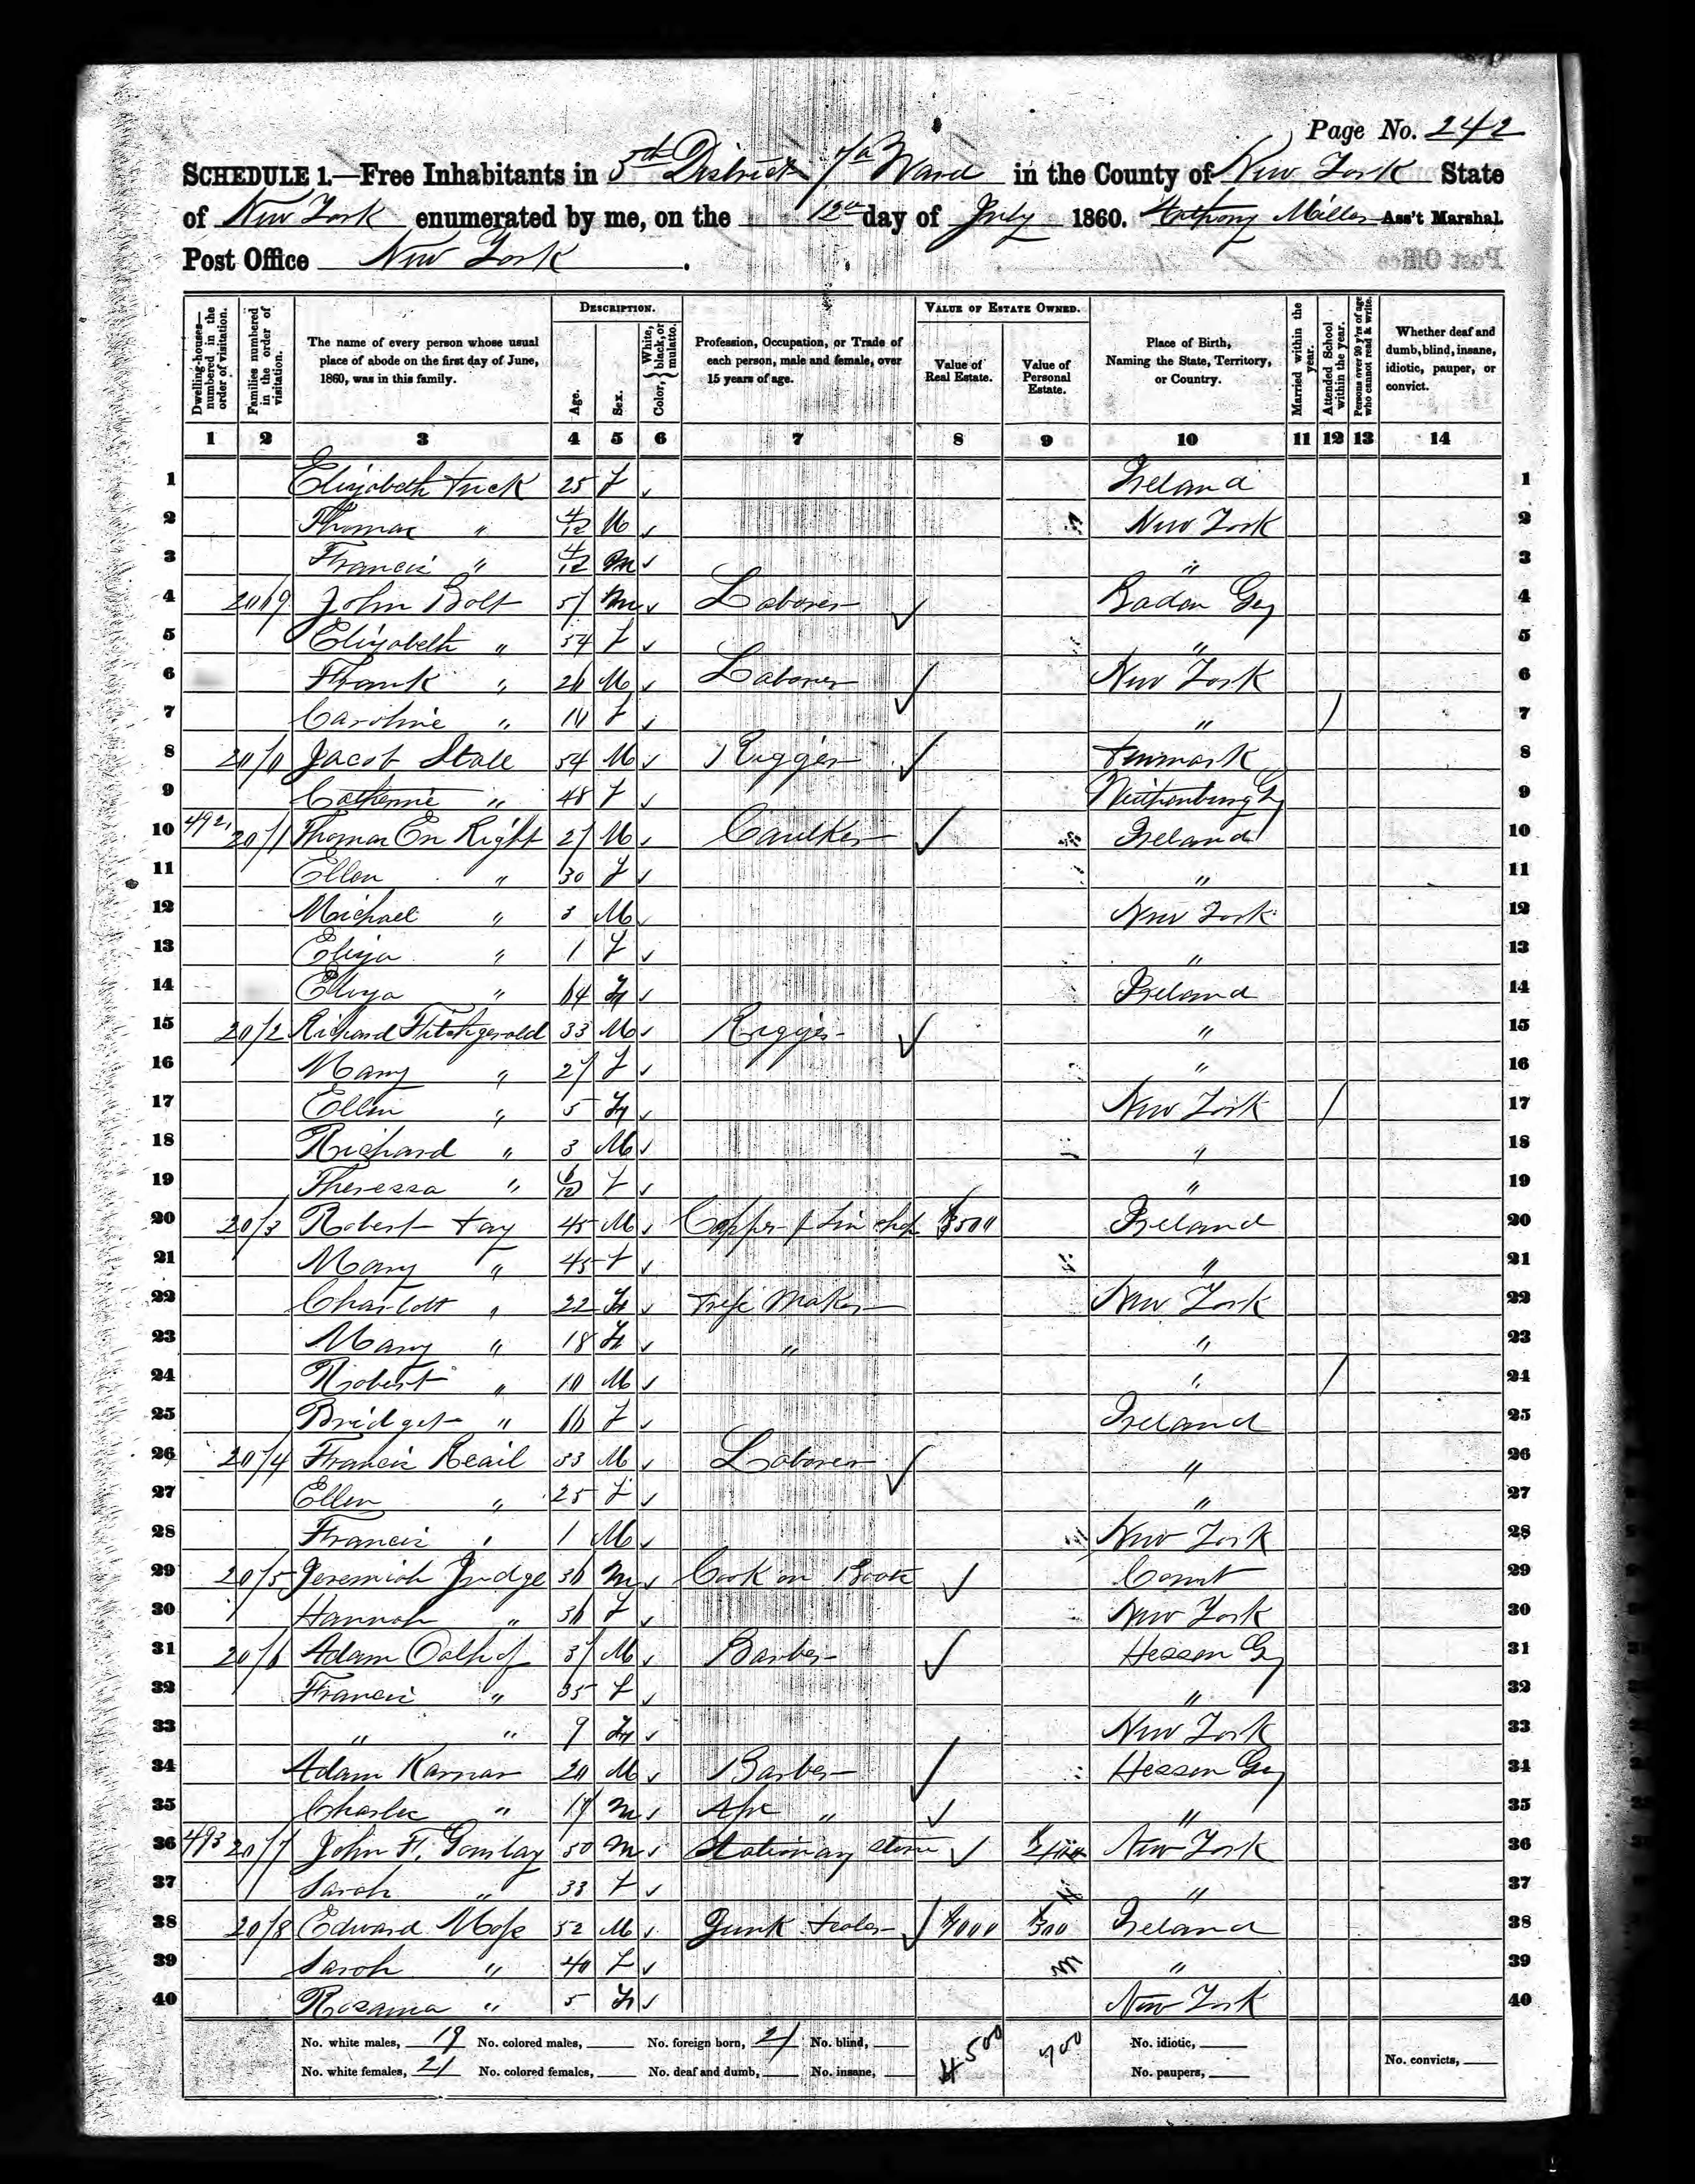 Page No. 242
SCHEDULE 1.—Free Inhabitants in 5th District 7th Ward in the County of New York State
of New York enumerated by me, on the 12th day of July 1860. Anthony Miller Ass't Marshal.
Post Office New York.
DESCRIPTION. VALUE OF ESTATE OWNED.
Dwelling-houses—numbered in the order of visitation.
Families numbered in the order of visitation.
The name of every person whose usual place of abode on the first day of June, 1860, was in this family.
Age.
Sex.
Color, White, black, or mulatto.
Profession, Occupation, or Trade of each person, male and female, over 15 years of age.
Value of Real Estate.
Value of Personal Estate.
Place of Birth, Naming the State, Territory, or Country.
Married within the year.
Attended School within the year.
Persons over 20 y'rs of age who cannot read & write.
Whether deaf and dumb, blind, insane, idiotic, pauper, or convict.
1 2 3 4 5 6 7 8 9 10 11 12 13 14
1 Elizabeth 25 F Ireland 1
2 Thomas " 4/12 M New York 2
3 Francis " 4/12 M " 3
4 2009 John Bolt 51 M Laborer 4
5 Elizabeth " 54 F " 5
6 Frank " 20 M Laborer New York 6
7 Caroline " 10 F " / 7
8 2010 Jacob Stall 54 M Rigger Denmark 8
9 Catherine " 48 F 9
10 492 2011 Thomas En Right 27 M Caulker Ireland 10
11 Ellen " 30 F " 11
12 Michael " 3 M New York 12
13 Eliza " 1 F " 13
14 Eliza " 64 F Ireland 14
15 2012 Richard Fitzgerald 33 M Rigger " 15
16 Mary " 27 F " 16
17 Ellen " 5 F New York / 17
18 Richard " 3 M " 18
19 Theressa " 6/12 F " 19
20 2013 Robert Fay 45 M Copper & tin shop $500 Ireland 20
21 Mary " 45 F " 21
22 Charlott " 22 F Maker New York 22
23 Mary " 18 F " " 23
24 Robert " 10 M " / 24
25 Bridget " 16 F Ireland 25
26 2014 Francis 33 M Laborer " 26
27 Ellen " 25 F " 27
28 Francis " 1 M New York 28
29 2015 Jeremiah Judge 36 M Cook on Boat Connt 29
30 Hannah " 36 F New York 30
31 2016 Adam 37 M Barber Hessen Gy 31
32 Francis " 35 F " 32
33 " " 9 F New York 33
34 Adam Karnar 20 M Barber Hessen Gy 34
35 Charles " 17 M Apr " " 35
36 493 2017 John F. 50 M Stationary store New York 36
37 Sarah " 33 F " 37
38 2018 Edward Moss 52 M Junk dealer $4000 $300 Ireland 38
39 Sarah " 40 F " 39
40 Rosanna " 5 F New York 40
No. white males, 19 No. colored males, No. foreign born, 21 No. blind, 4500 700 No. idiotic,
No. white females, 21 No. colored females, No. deaf and dumb, No. insane, No. paupers, No. convicts,